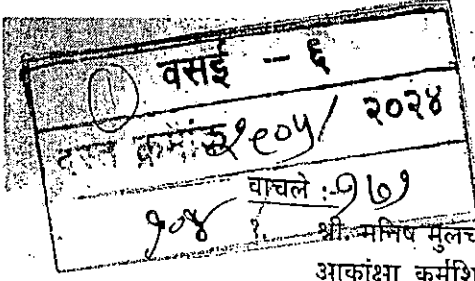 वसई - ६
दस्त क्रमांक २९०५/ २०२४
१०४ वाचले :- १७१
१. श्री. मनिष मुलच
आकांक्षा कमर्शि